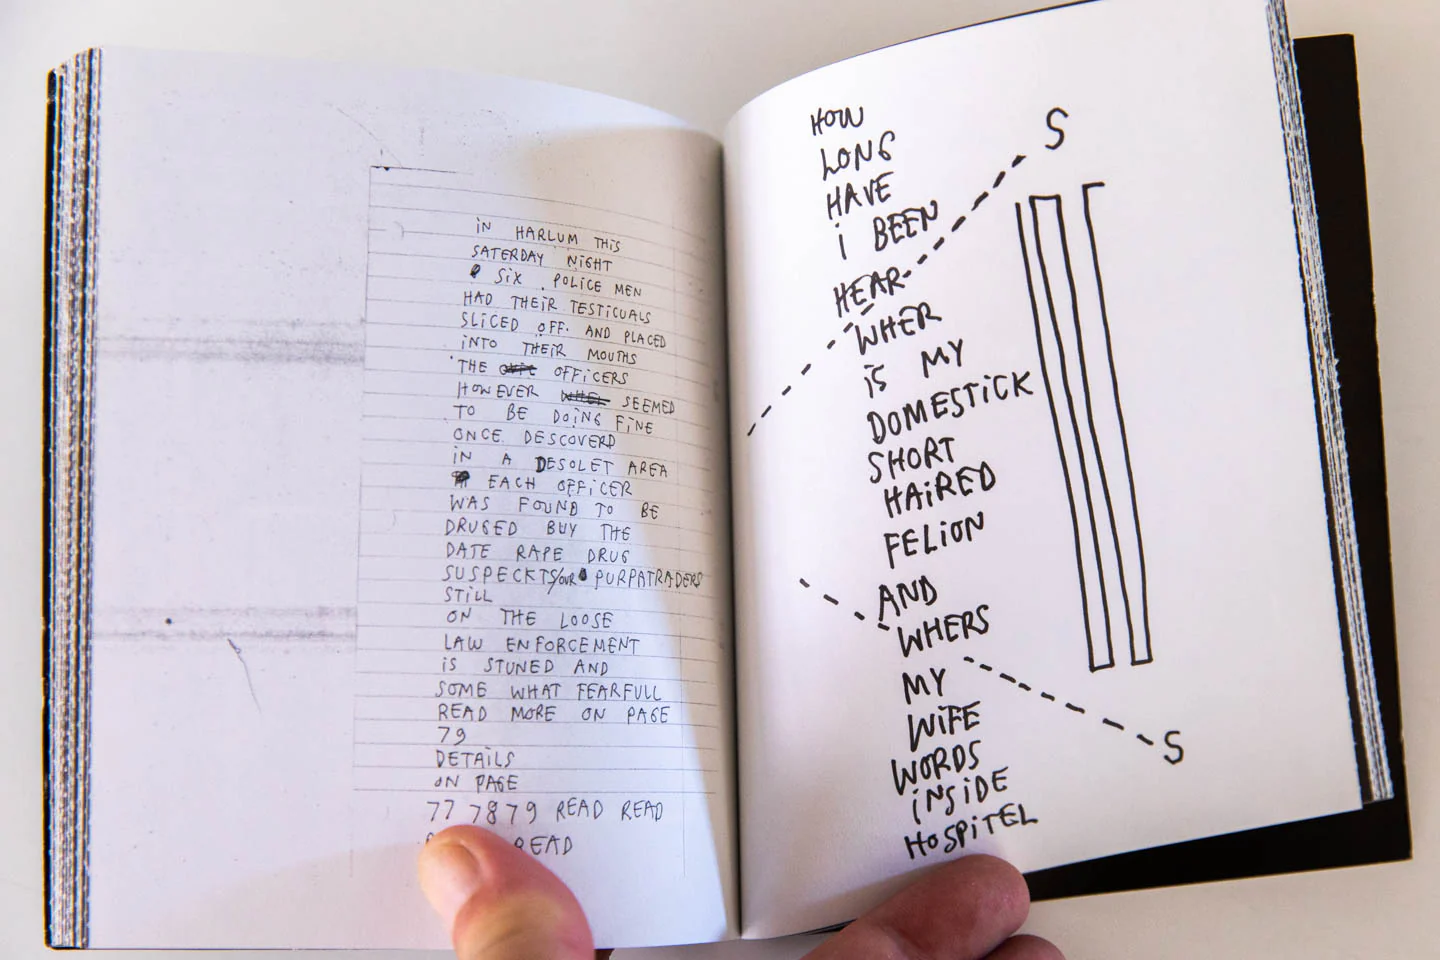 iN HARLUM THiS
SATERDAY NiGHT
SiX POLiCE MEN
HAD THEiR TESTiCUALS
SLiCED OFF. AND PLACED
iNTO THEiR MOUTHS
THE OFFiCERS
HOWEVER SEEMED
TO BE DOiNG FiNE
ONCE DESCOVERD
iN A DESOLET AREA
EACH OFFiCER
WAS FOUND TO BE
DRUGED BUY THE
DATE RAPE DRUG
SUSPECKTS/OUR PURPATRADERS
STiLL
ON THE LOOSE
LAW ENFORCEMENT
iS STUNED AND
SOME WHAT FEARFULL
READ MORE ON PAGE
79
DETAiLS
ON PAGE
77 78 79 READ READ
READ
HOW
LONG
HAVE
i BEEN
HEAR
WHER
iS MY
DOMESTiCK
SHORT
HAiRED
FELiON
AND
WHERS
MY
WiFE
WORDS
iNSiDE
HOSPiTEL
S
S